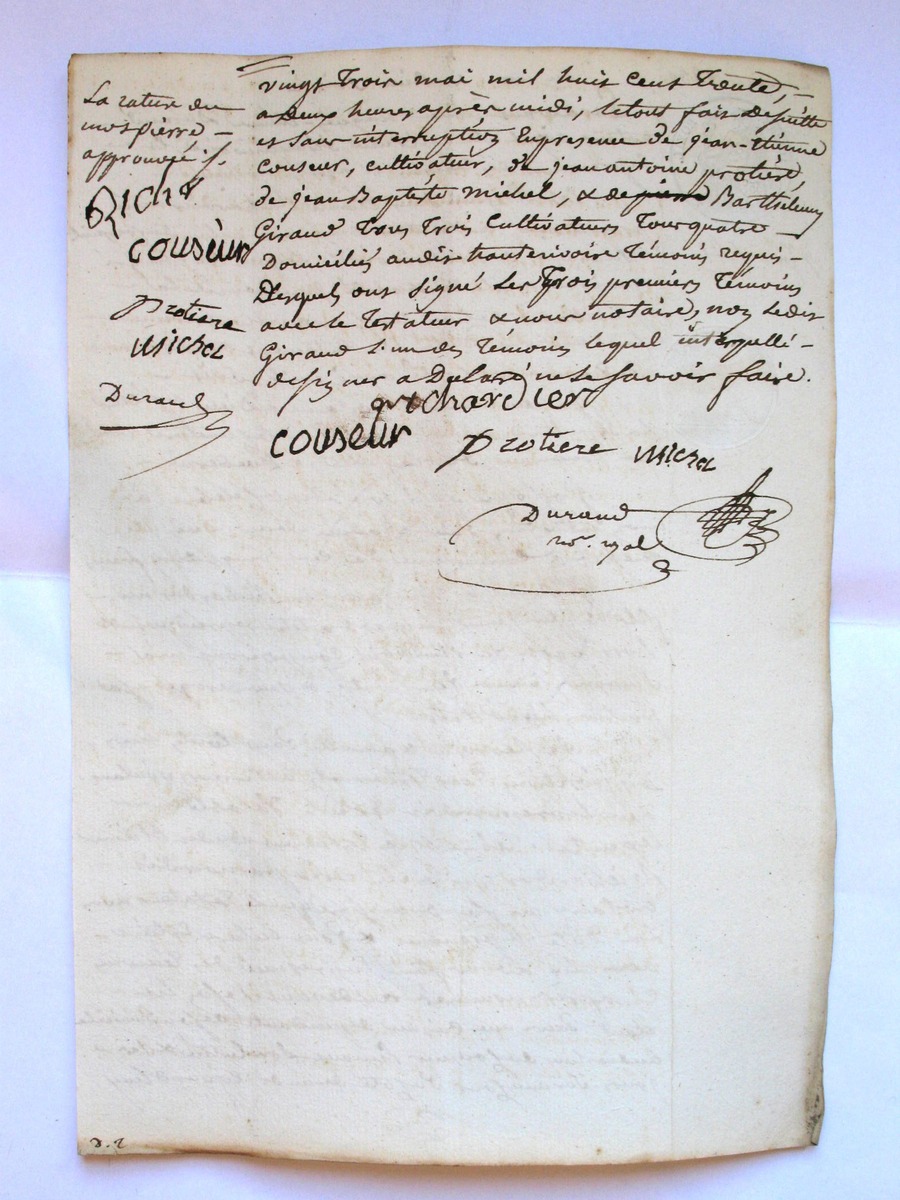 La rature du
mot pierre –
approuvée ./.
Richr
couseur
Protiere
Michel
Durand
vingt trois mai mil huit cent trente, –
a deux heures après midi, letout fait de suitte
et sans interruption Enpresence de jean-Etienne
Couseur, cultivateur, de jean antoine protière,
de jean Baptiste Michel, & de pierre Barthelemy
Giraud tous trois Cultivateurs tous quatre
Domiciliés audit hauterivoire Témoins requis –
Desquels ont signé les trois premiers Témoins
avec le Testateur & nous notaire, non ledit
Giraud l'un des Témoins lequel interpellé –
designer a Déclaré ne le savoir faire.
richardier
couseur Protiere Michel
Durand
nore. royal